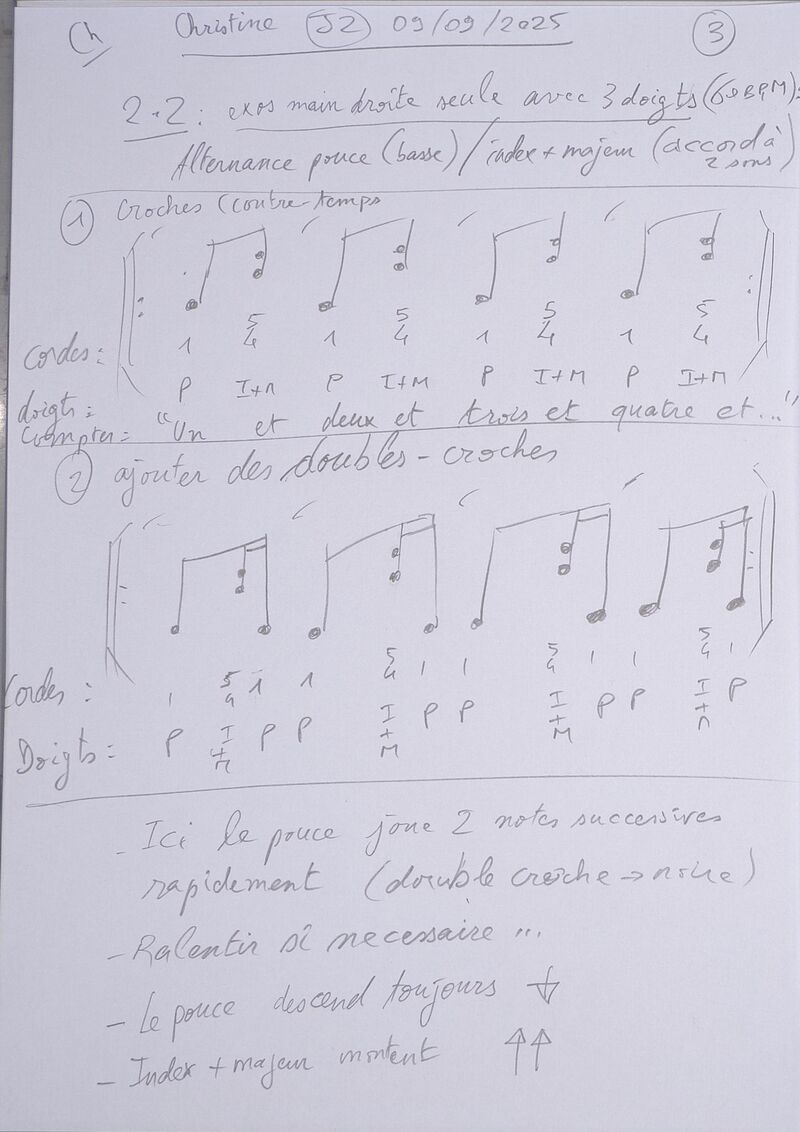 Ch Christine J2 09/09/2025 3
2.2 : exos main droite seule avec 3 doigts (60 BPM) :
Alternance pouce (basse) / index + majeur (accord à 2 sons)
1 Croches (contre-temps
Cordes : 1 5 4 1 5 4 1 5 4 1 5 4
doigts : P I+M P I+M P I+M P I+M
Compter = "Un et deux et trois et quatre et..."
2 ajouter des doubles-croches
Cordes : 1 5 4 1 1 5 4 1 1 5 4 1 1 5 4 1
Doigts : P I+M P P I+M P P I+M P P I+M P
- Ici le pouce joue 2 notes successives
rapidement (double croche → noire)
- Ralentir si necessaire ...
- Le pouce descend toujours ↓
- Index + majeur montent ↑↑